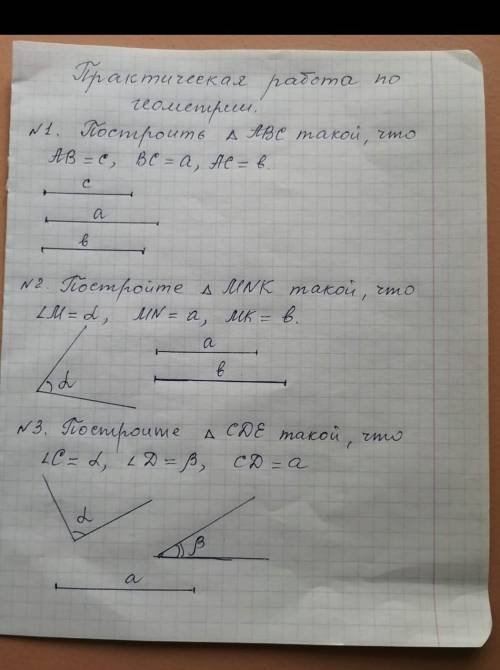 Практическая работа по
геометрии.
№1. Построить △ ABC такой, что
AB = c, BC = a, AC = в.
c
a
в
№2. Постройте △ MNK такой, что
∠M = α, MN = a, MK = в.
α
a
в
№3. Постройте △ CDE такой, что
∠C = α, ∠D = β, CD = a
α
β
a